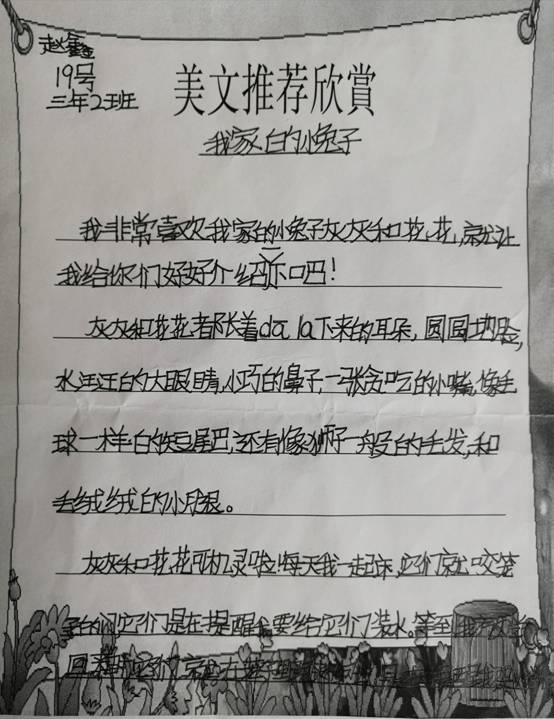 赵鑫
19号
三年2班
美文推荐欣赏
我家的小兔子
我非常喜欢我家的小兔子灰灰和花花,就让
我给你们好好介绍一下吧!
灰灰和花花都长着da la下来的耳朵,圆圆地脸,
水汪汪的大眼睛,小巧的鼻子,一张贪吃的小嘴,像毛
球一样的短尾巴,还有像狮子一般的毛发,和
毛绒绒的小腿。
灰灰和花花可机灵啦!每天我一起床,它们就咬笼
子的门,它们是在提醒我要给它们装水。等到我放学
回来时它们就